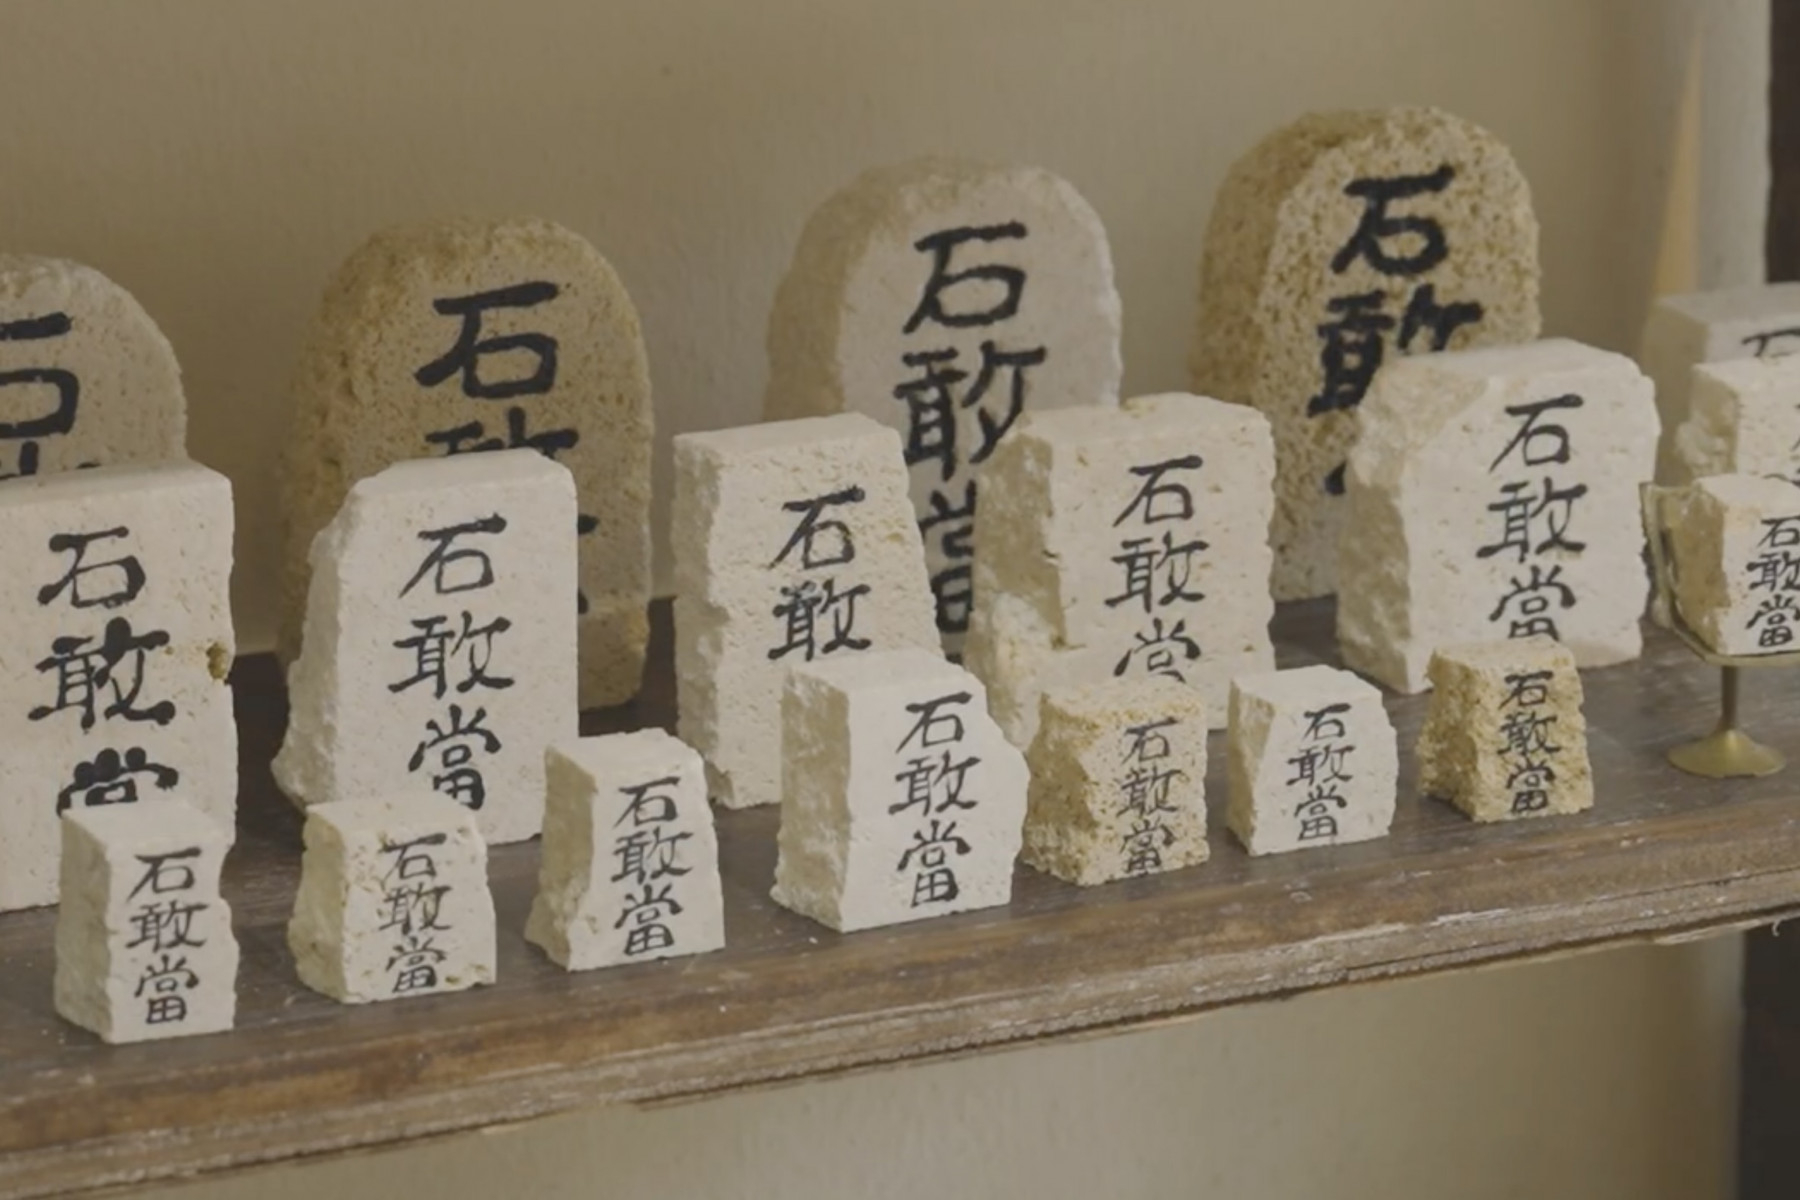 石
石敢
石敢當
石敢
石敢當
石敢當
石敢
石敢當
石敢當
石敢當
石敢當
石敢當
石敢當
石敢當
石敢當
石敢當
石敢當